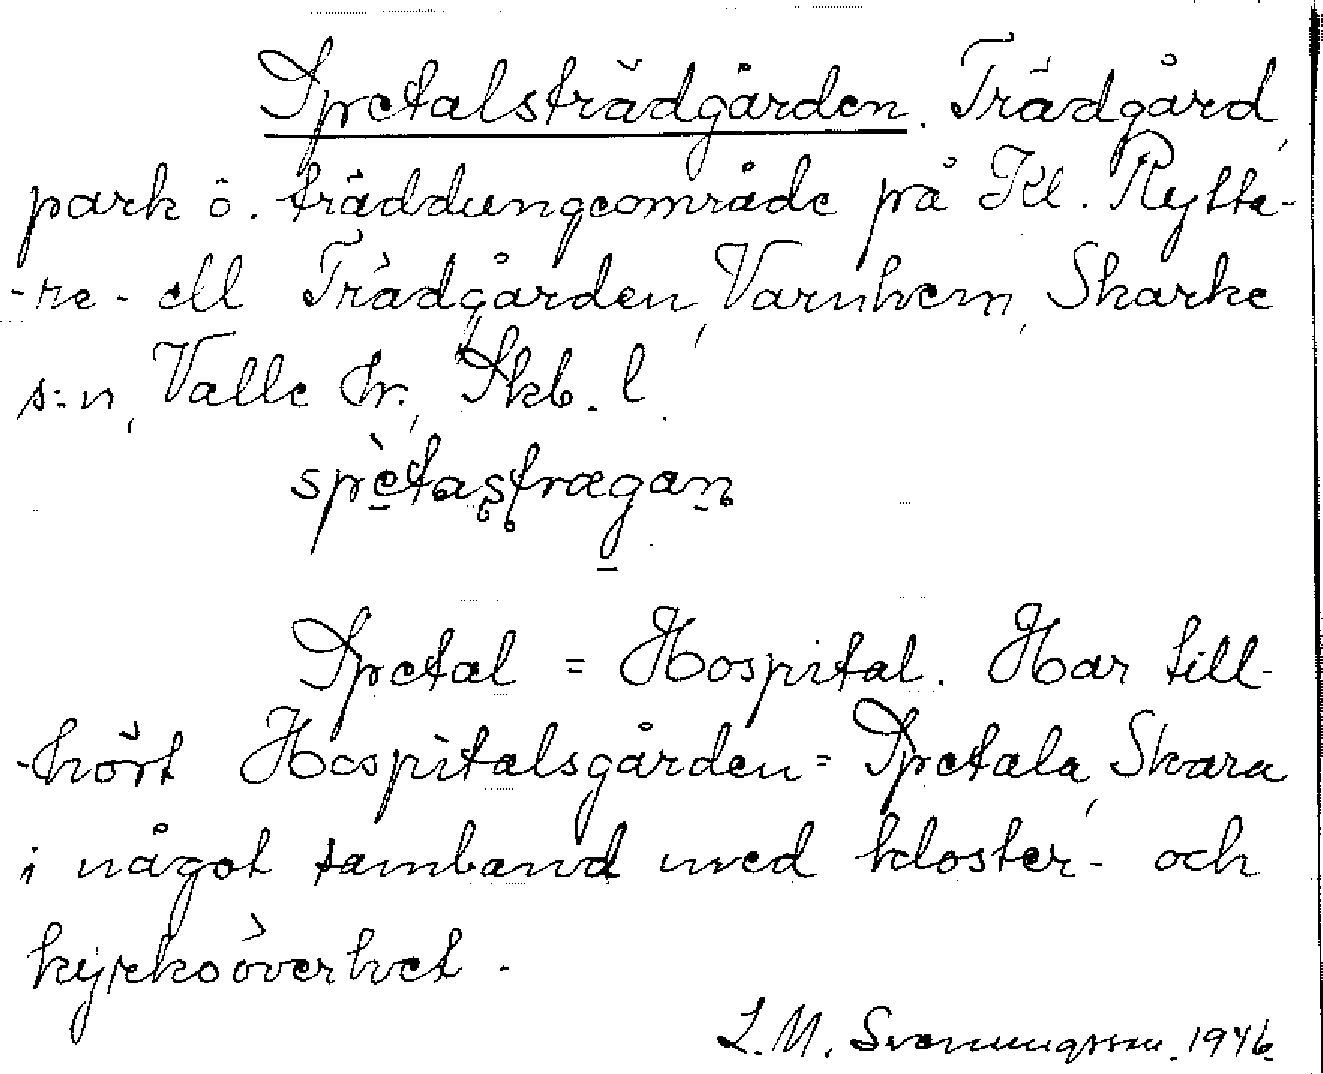 Spetalsträdgården. Trädgård,
park o. träddungeområde på Kl. Rytta-
-re- ell Trädgården, Varnhem, Skarke
s:n, Valle hr., Skb. l.
spètas̨t̨rægan̨
Spetal = Hospital. Har till-
-hört Hospitalsgården = Spetala, Skara
i något samband med kloster- och
kyrkoöverhet.
L.M. Svenungsson. 1946.